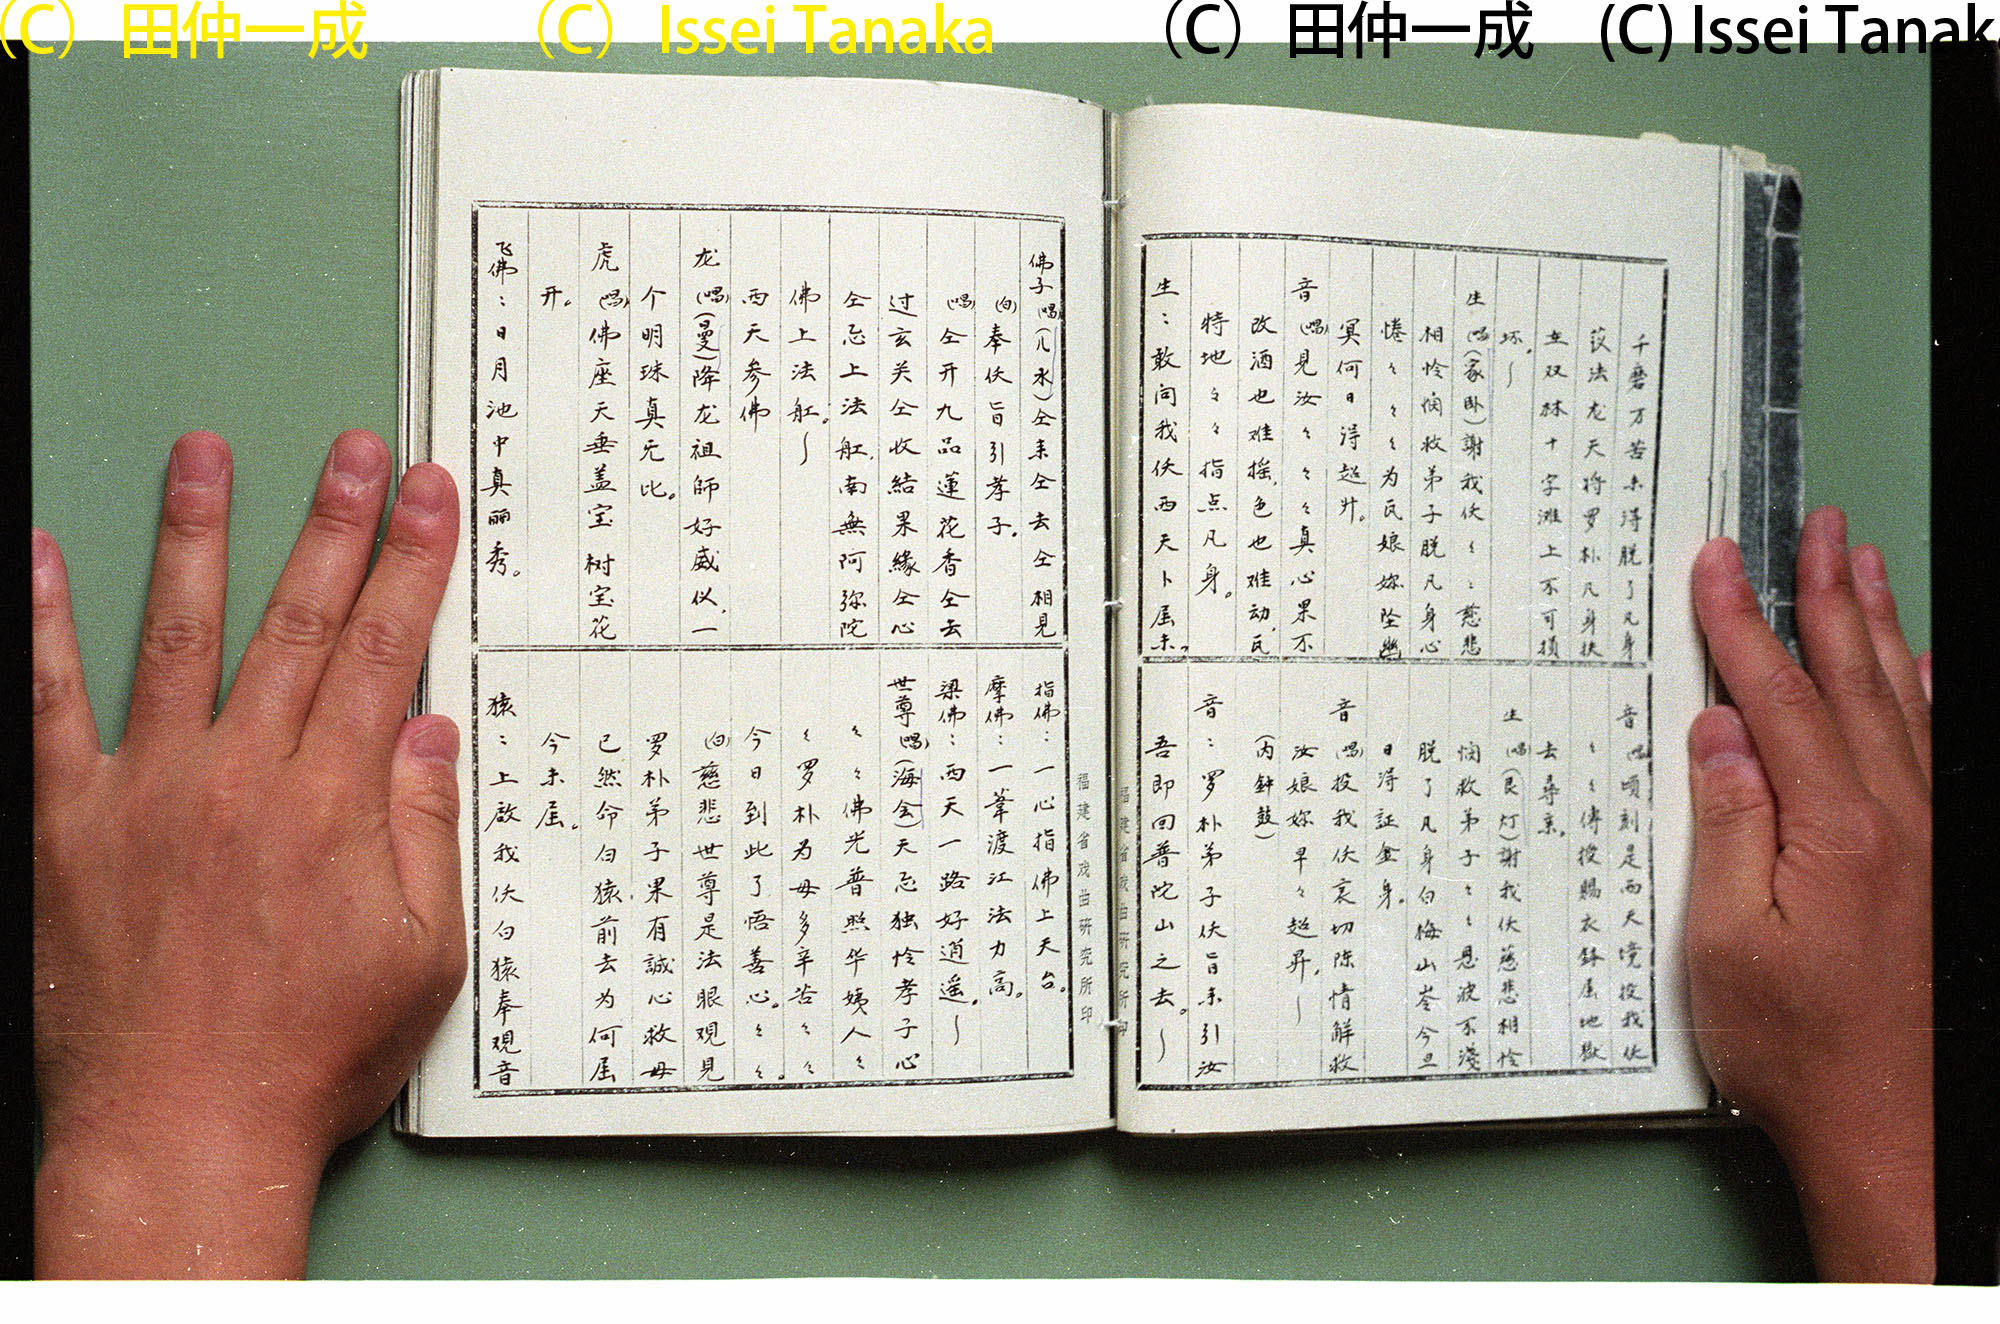 (C) 田仲一成 (C) Issei Tanaka (C) 田仲一成 (C) Issei Tanak
千磨万苦未得脱了凡身
法龙天将罗朴凡身扶
在双林十字滩上不可损
坏。
生(唱)(家卧)謝我佛々々慈悲
相怜悯救弟子脱凡身心
惓々々々为瓦娘妳坠幽
冥何日得超升。
音(唱)見汝々々々々真心果不
改酒也难摇,色也难动,瓦
特地々々指点凡身。
生:敢问我佛西天卜屈未。
音(唱)顷刻是西天境投我佛
々々傳授賜衣鉢屈地獄
去尋亲。
生(唱)(艮灯)謝我佛慈悲相怜
悯救弟子々々恩波不淺
脱了凡身白梅山岑今旦
日得証金身。
音(唱)投我佛哀切陈情解救
汝娘妳早々超昇,
(内鈡鼓)
音:罗朴弟子佛旨未引汝
吾即回普陀山之去。
福建省戏曲研究所印
福建省戏曲研究所印
佛子(唱)(儿水)仝未仝去仝相見
(白)奉佛旨引孝子。
(唱)仝开九品蓮花香仝去
过玄关仝收結果緣仝心
仝忑上法舡,南無阿弥陀
佛上法舡。
西天参佛
龙(唱)(曼)降龙祖師好威仪,一
个明珠真无比。
虎(唱)佛座天垂盖宝树宝花
开。
飞佛:日月池中真丽秀。
指佛:一心指佛上天台。
摩佛:一葦渡江法力高。
梁佛:西天一路好逍遥。
世尊(唱)(海会)天忑独怜孝子心
々々佛光普照华姨人々
々罗朴为母多辛苦々々
今日到此了悟善心。々々。
(白)慈悲世尊是法眼观見
罗朴弟子果有誠心救母
已然命白猿前去为何屈
今未屈。
猿:上啟我佛白猿奉观音